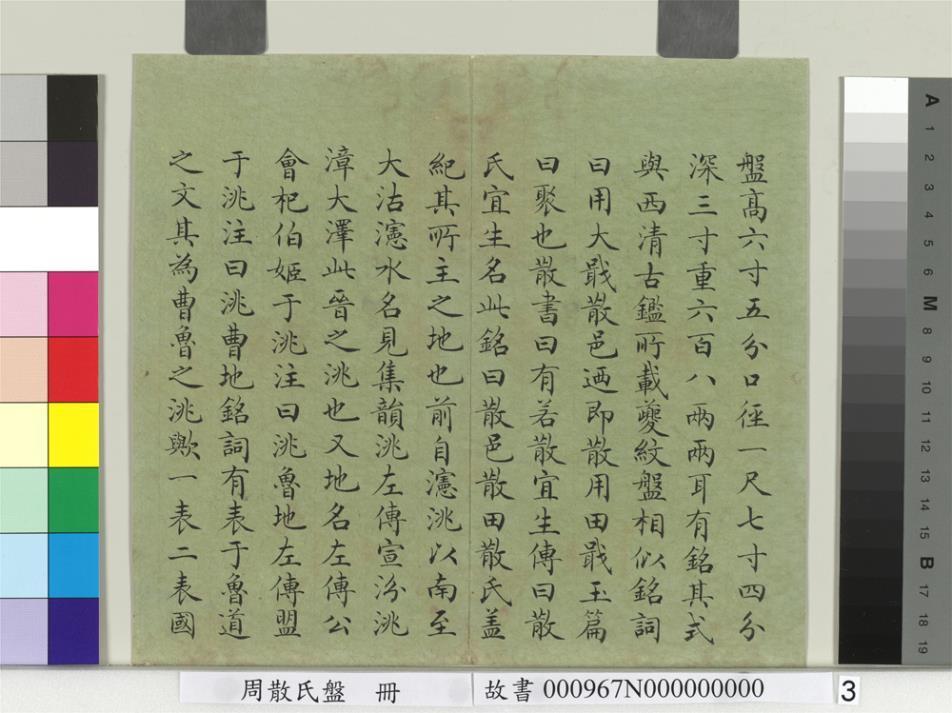 盤高六寸五分口徑一尺七寸四分
深三寸重六百八兩兩耳有銘其式
與西清古鑑所載夔紋盤相似銘詞
曰用大戢散邑迺即散用田戢玉篇
曰聚也散書曰有若散宜生傳曰散
氏宜生名此銘曰散邑散田散氏蓋
紀其所主之地也前自瀗洮以南至
大沽瀗水名見集韻洮左傳宣汾洮
漳大澤此晉之洮也又地名左傳公
會杞伯姬于洮注曰洮魯地左傳盟
于洮注曰洮曹地銘詞有表于魯道
之文其為曹魯之洮歟一表二表國
周散氏盤 冊
故書 000967N000000000
3
A
1
2
3
4
5
6
M
8
9
10
11
12
13
14
15
B
17
18
19